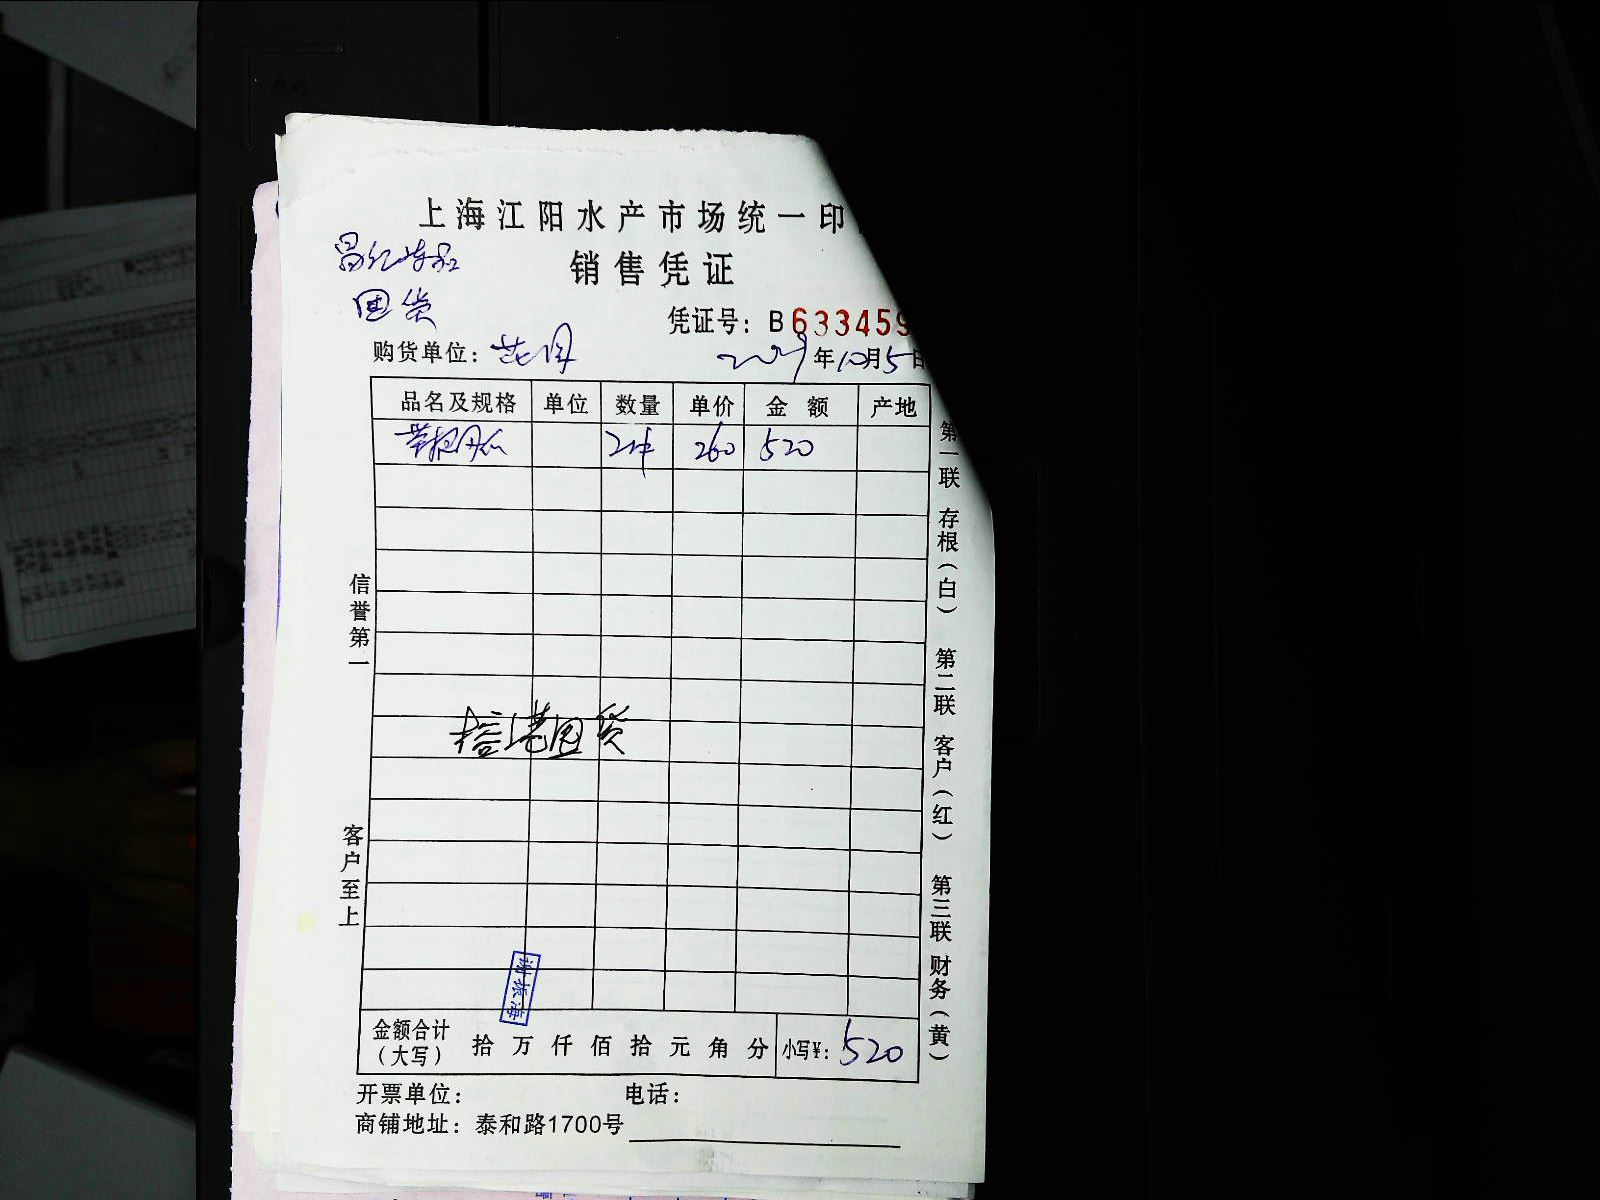 上海江阳水产市场统一印
销售凭证
回货
凭证号: B 633459
购货单位:
年10月5日
品名及规格 单位 数量 单价 金 额 产地
2件 260 520
信誉第一
客户至上
回货
谢振海
第一联 存根(白) 第二联 客户(红) 第三联 财务(黄)
金额合计(大写) 拾 万 仟 佰 拾 元 角 分 小写¥: 520
开票单位: 电话:
商铺地址: 泰和路1700号